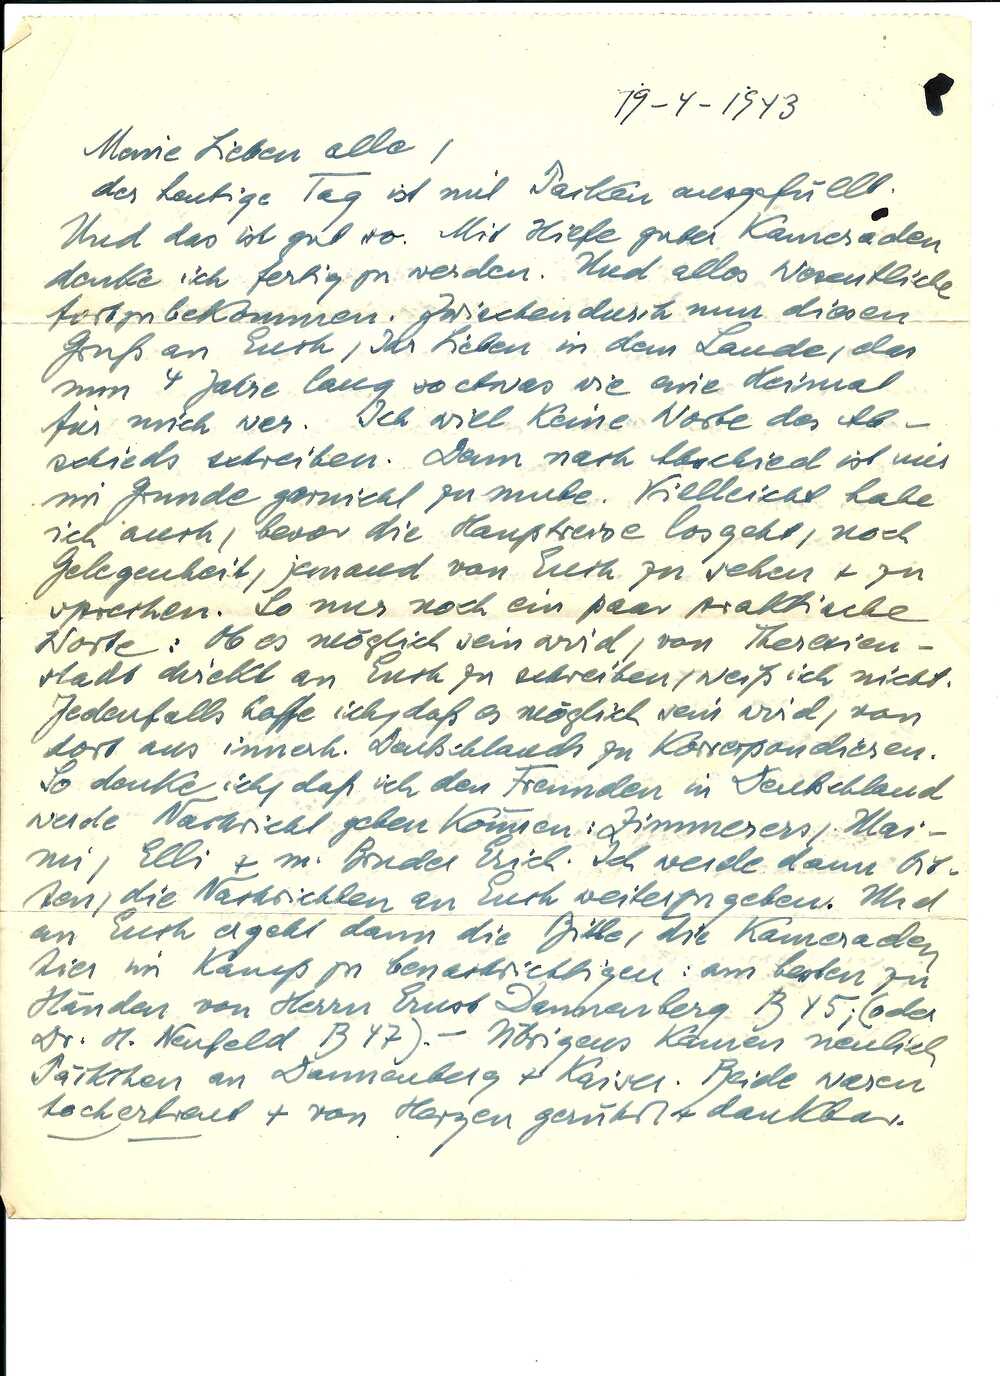 19-4-1943
Meine Lieben alle,
der heutige Tag ist mit Packen ausgefüllt.
Und das ist gut so. Mit Hilfe guter Kameraden
denke ich fertig zu werden. Und alles Wesentliche
fortzubekommen. Zwischendurch nun diesen
Gruß an Euch, Ihr Lieben in dem Lande, das
nun 4 Jahre lang so etwas wie eine Heimat
für mich war. Ich will keine Worte des Ab-
schieds schreiben. Denn nach Abschied ist mir
im Grunde garnicht zu mute. Vielleicht habe
ich auch, bevor die Hauptreise losgeht, noch
Gelegenheit, jemand von Euch zu sehen + zu
sprechen. So nur noch ein paar praktische
Worte: Ob es möglich sein wird, von Theresien-
stadt direkt an Euch zu schreiben, weiß ich nicht.
Jedenfalls hoffe ich, daß es möglich sein wird, von
dort aus innerh. Deutschlands zu korrespondieren.
So denke ich, daß ich den Freunden in Deutschland
werde Nachricht geben können: Zimmerers, Mai-
mi, Elli + m. Bruder Erich. Ich werde dann bit-
ten, die Nachrichten an Euch weiterzugeben. Und
an Euch ergeht dann die Bitte, die Kameraden
hier im Kamp zu benachrichtigen: am besten zu
Händen von Herrn Ernst Dannenberg B 45; (oder
Dr. H. Neufeld B 47). - Übrigens kamen neulich
Päckchen an Dannenberg + Kaiser. Beide waren
hocherfreut + von Herzen gerührt + dankbar.